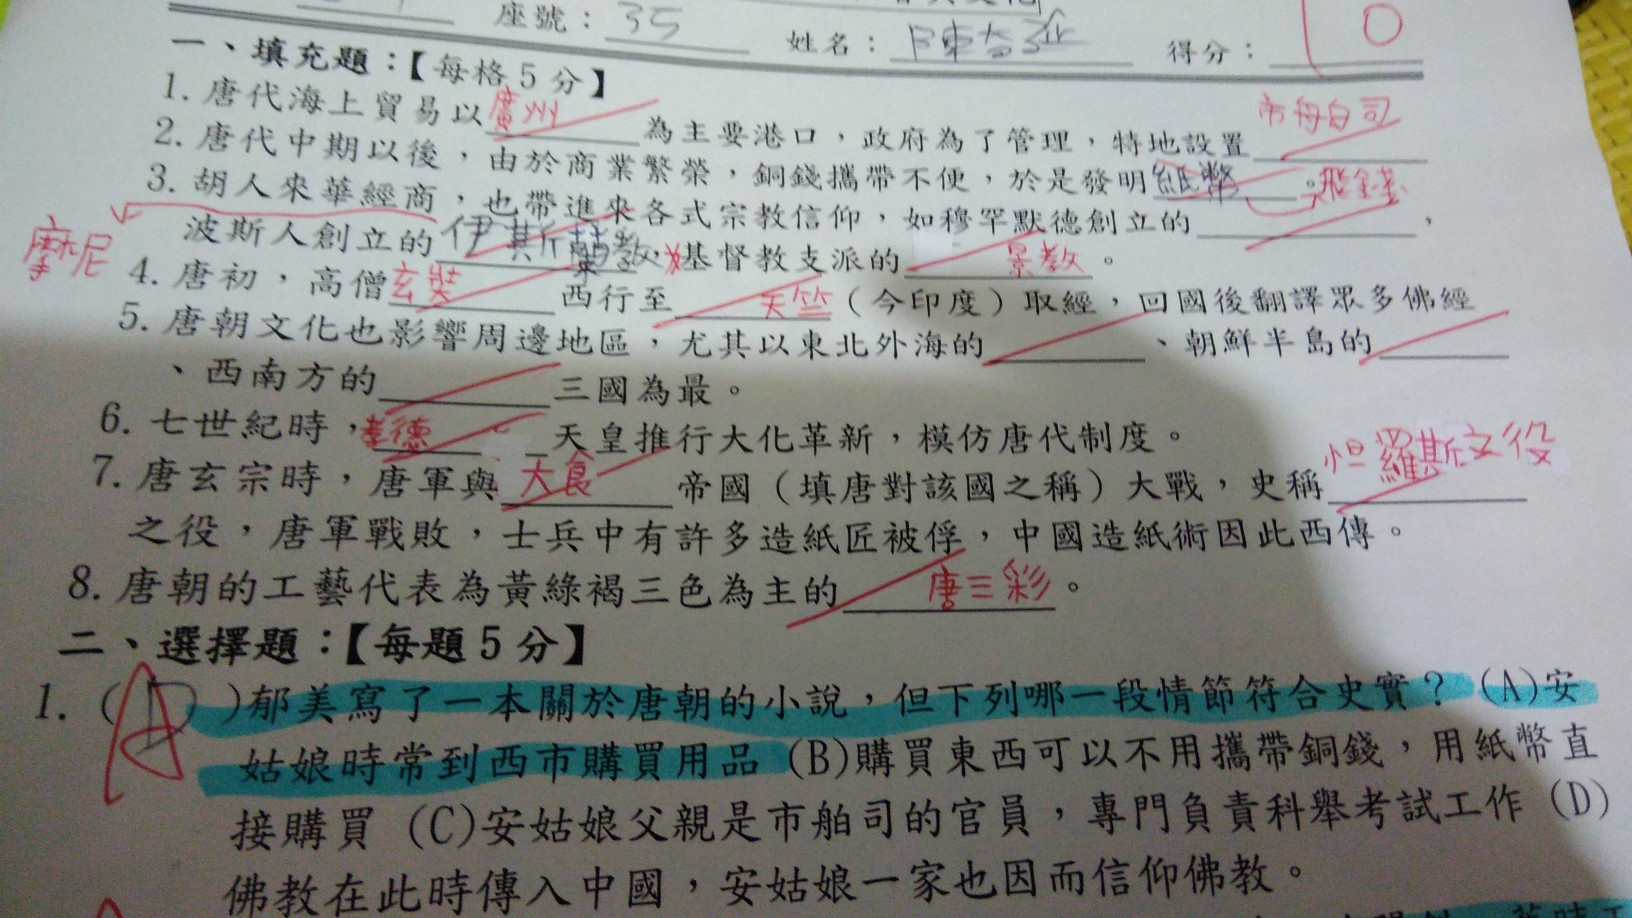 座號：35 姓名：陳 得分：10
一、填充題：【每格5分】
1. 唐代海上貿易以廣州為主要港口，政府為了管理，特地設置市舶司
2. 唐代中期以後，由於商業繁榮，銅錢攜帶不便，於是發明紙幣。飛錢
3. 胡人來華經商，也帶進來各式宗教信仰，如穆罕默德創立的，
摩尼 波斯人創立的伊斯蘭教，基督教支派的景教。
4. 唐初，高僧玄奘西行至天竺（今印度）取經，回國後翻譯眾多佛經
5. 唐朝文化也影響周邊地區，尤其以東北外海的、朝鮮半島的
、西南方的三國為最。
6. 七世紀時，孝德天皇推行大化革新，模仿唐代制度。
7. 唐玄宗時，唐軍與大食帝國（填唐對該國之稱）大戰，史稱怛羅斯之役
之役，唐軍戰敗，士兵中有許多造紙匠被俘，中國造紙術因此西傳。
8. 唐朝的工藝代表為黃綠褐三色為主的唐三彩。
二、選擇題：【每題5分】
1. (D)郁美寫了一本關於唐朝的小說，但下列哪一段情節符合史實？(A)安
A
姑娘時常到西市購買用品 (B)購買東西可以不用攜帶銅錢，用紙幣直
接購買 (C)安姑娘父親是市舶司的官員，專門負責科舉考試工作 (D)
佛教在此時傳入中國，安姑娘一家也因而信仰佛教。